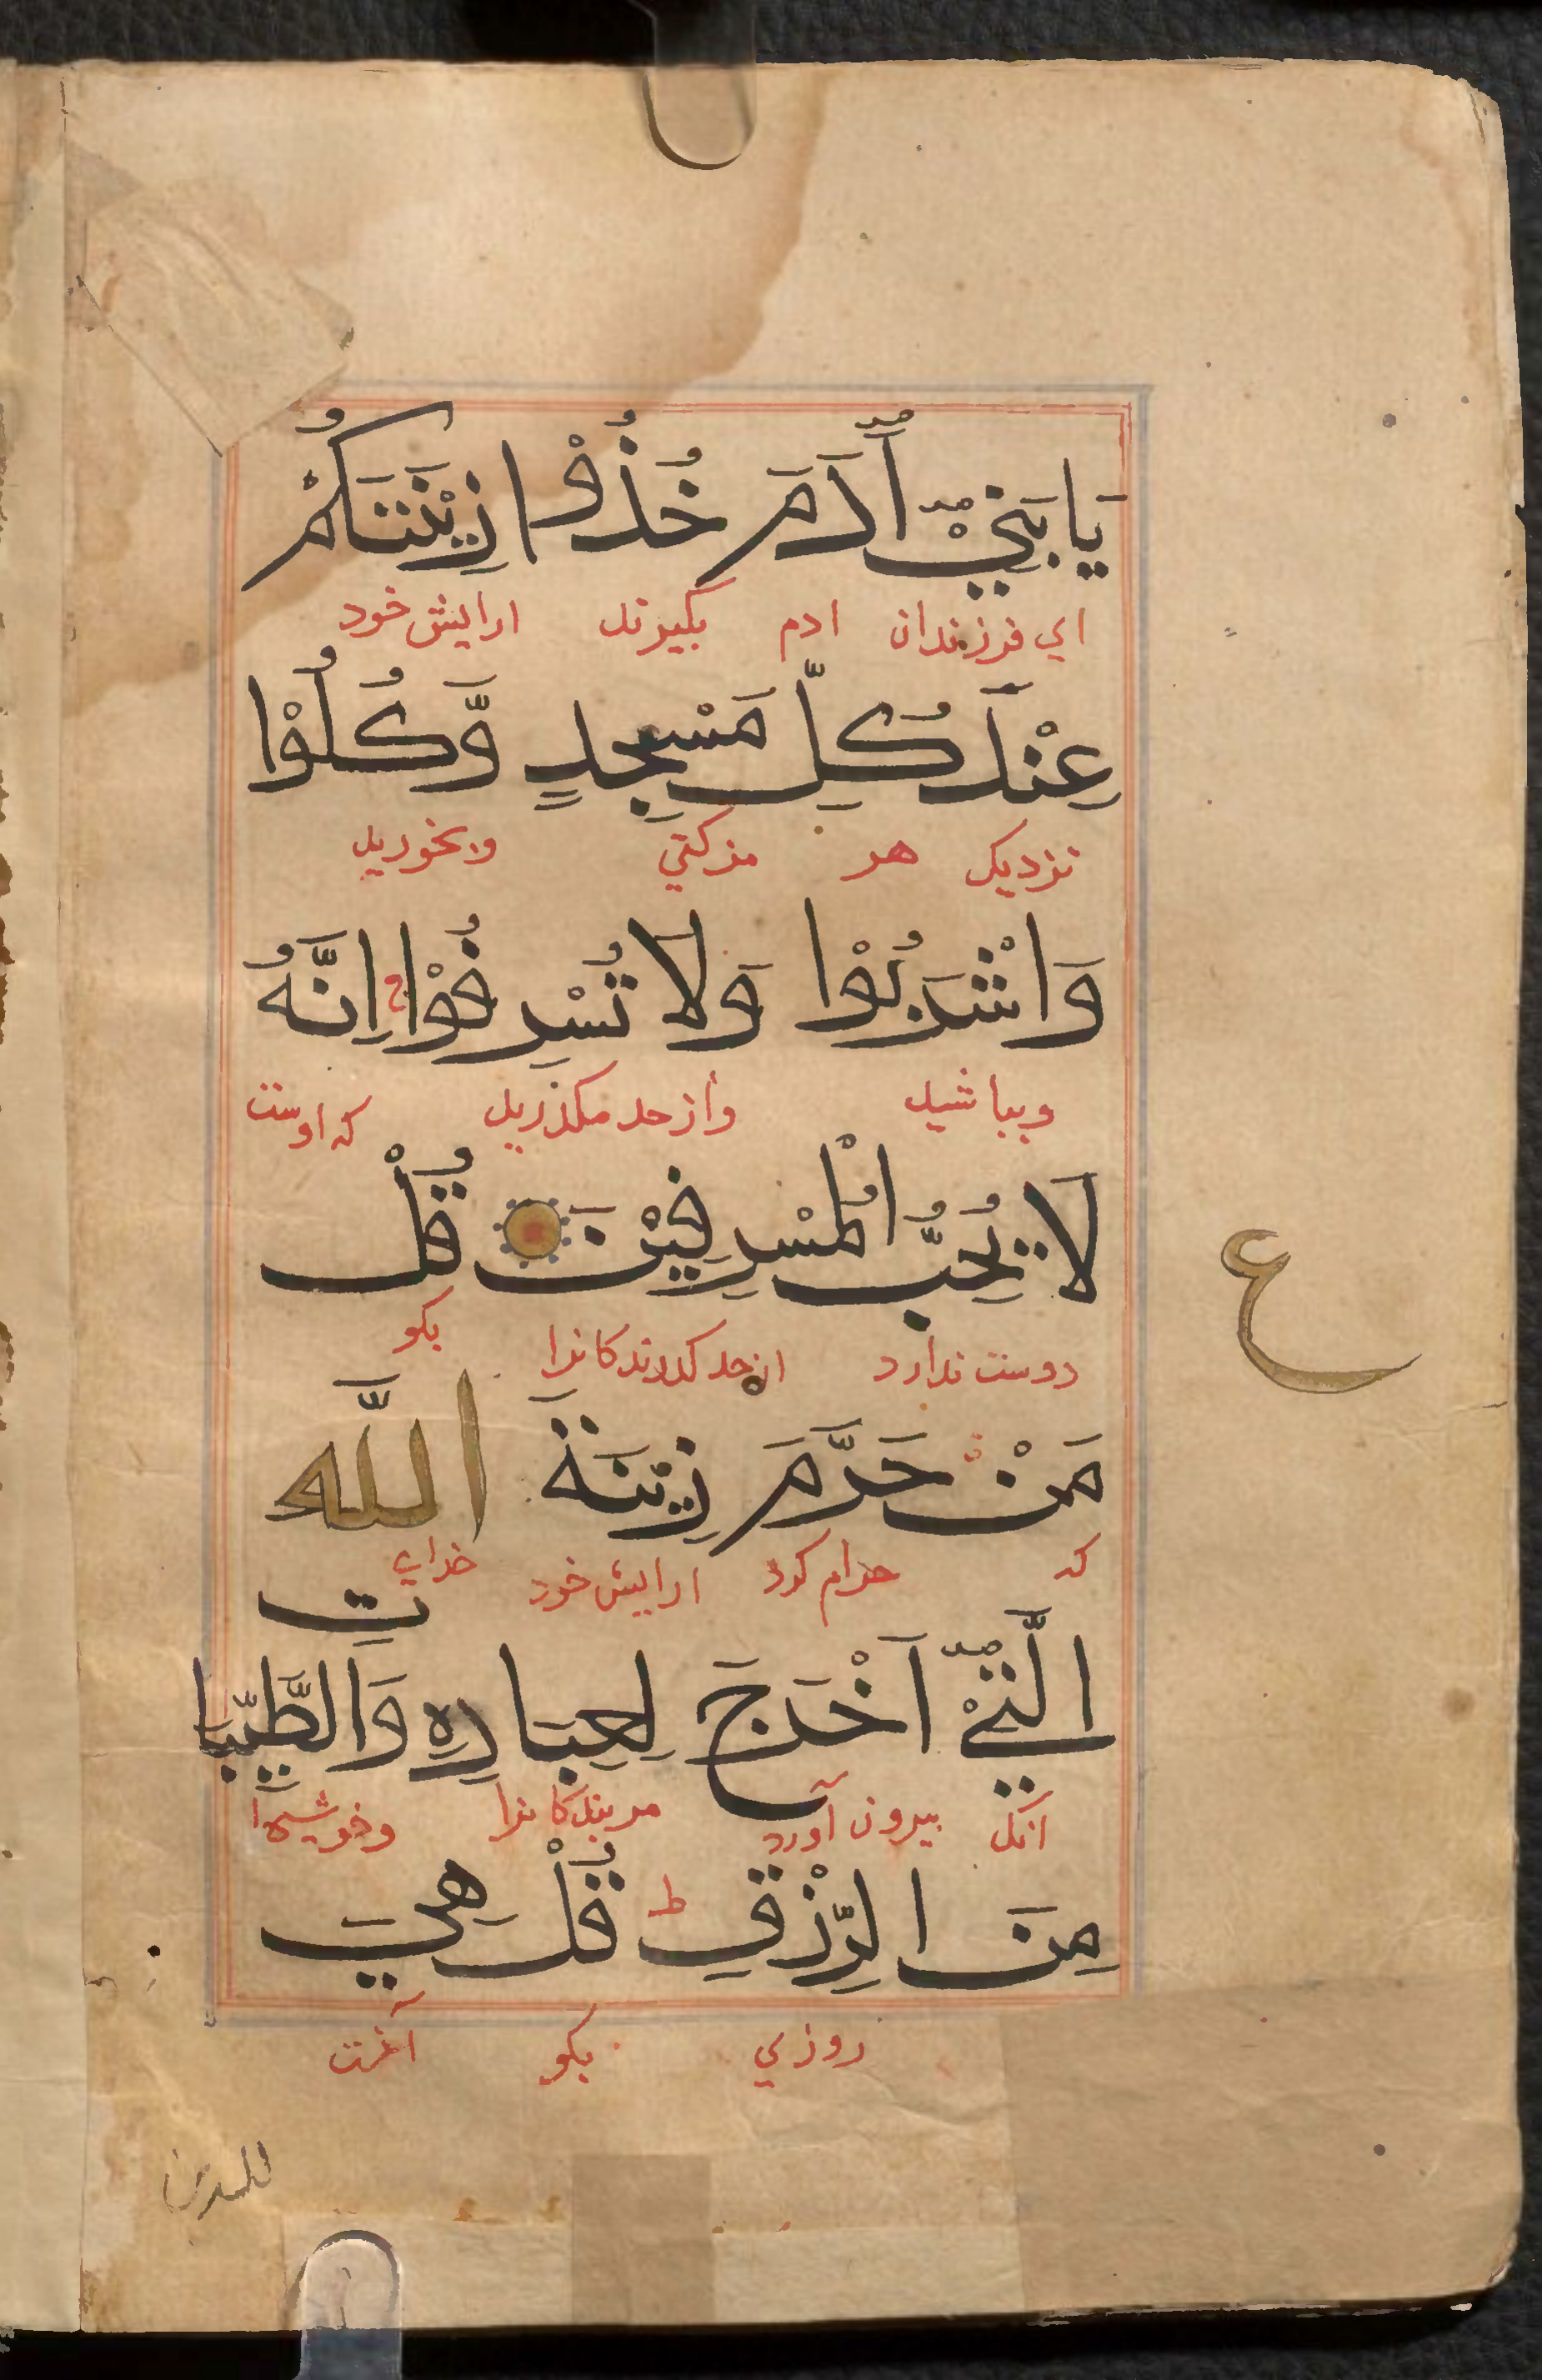 يَا بَنِيْٓ اٰدَمَ خُذُوْا زِيْنَتَكُمْ
اي فرزندان ادم بكيرند ارايش خود
عِنْدَ كُلِّ مَسْجِدٍ وَّكُلُوْا
نزديك هر مزكتي وبخوريد
وَاشْرَبُوْا وَلَا تُسْرِفُوْا ج اِنَّهُ
وبياشيد وازحد مكذريد كه اوست
لَا يُحِبُّ الْمُسْرِفِيْنَ قُلْ
دوست ندارد ازحد كذرندكانرا بكو
ع
مَنْ حَرَّمَ زِيْنَةَ اللّٰه
كه حرام كرد ارايش خود خداي
الَّتِيْٓ اَخْرَجَ لِعِبَادِهِ وَالطَّيِّبَاتِ
آنك بيرون آورد مربندكانرا وخوشيها
مِنَ الرِّزْقِ ط قُلْ هِيَ
روزي بكو آنرت
للذين